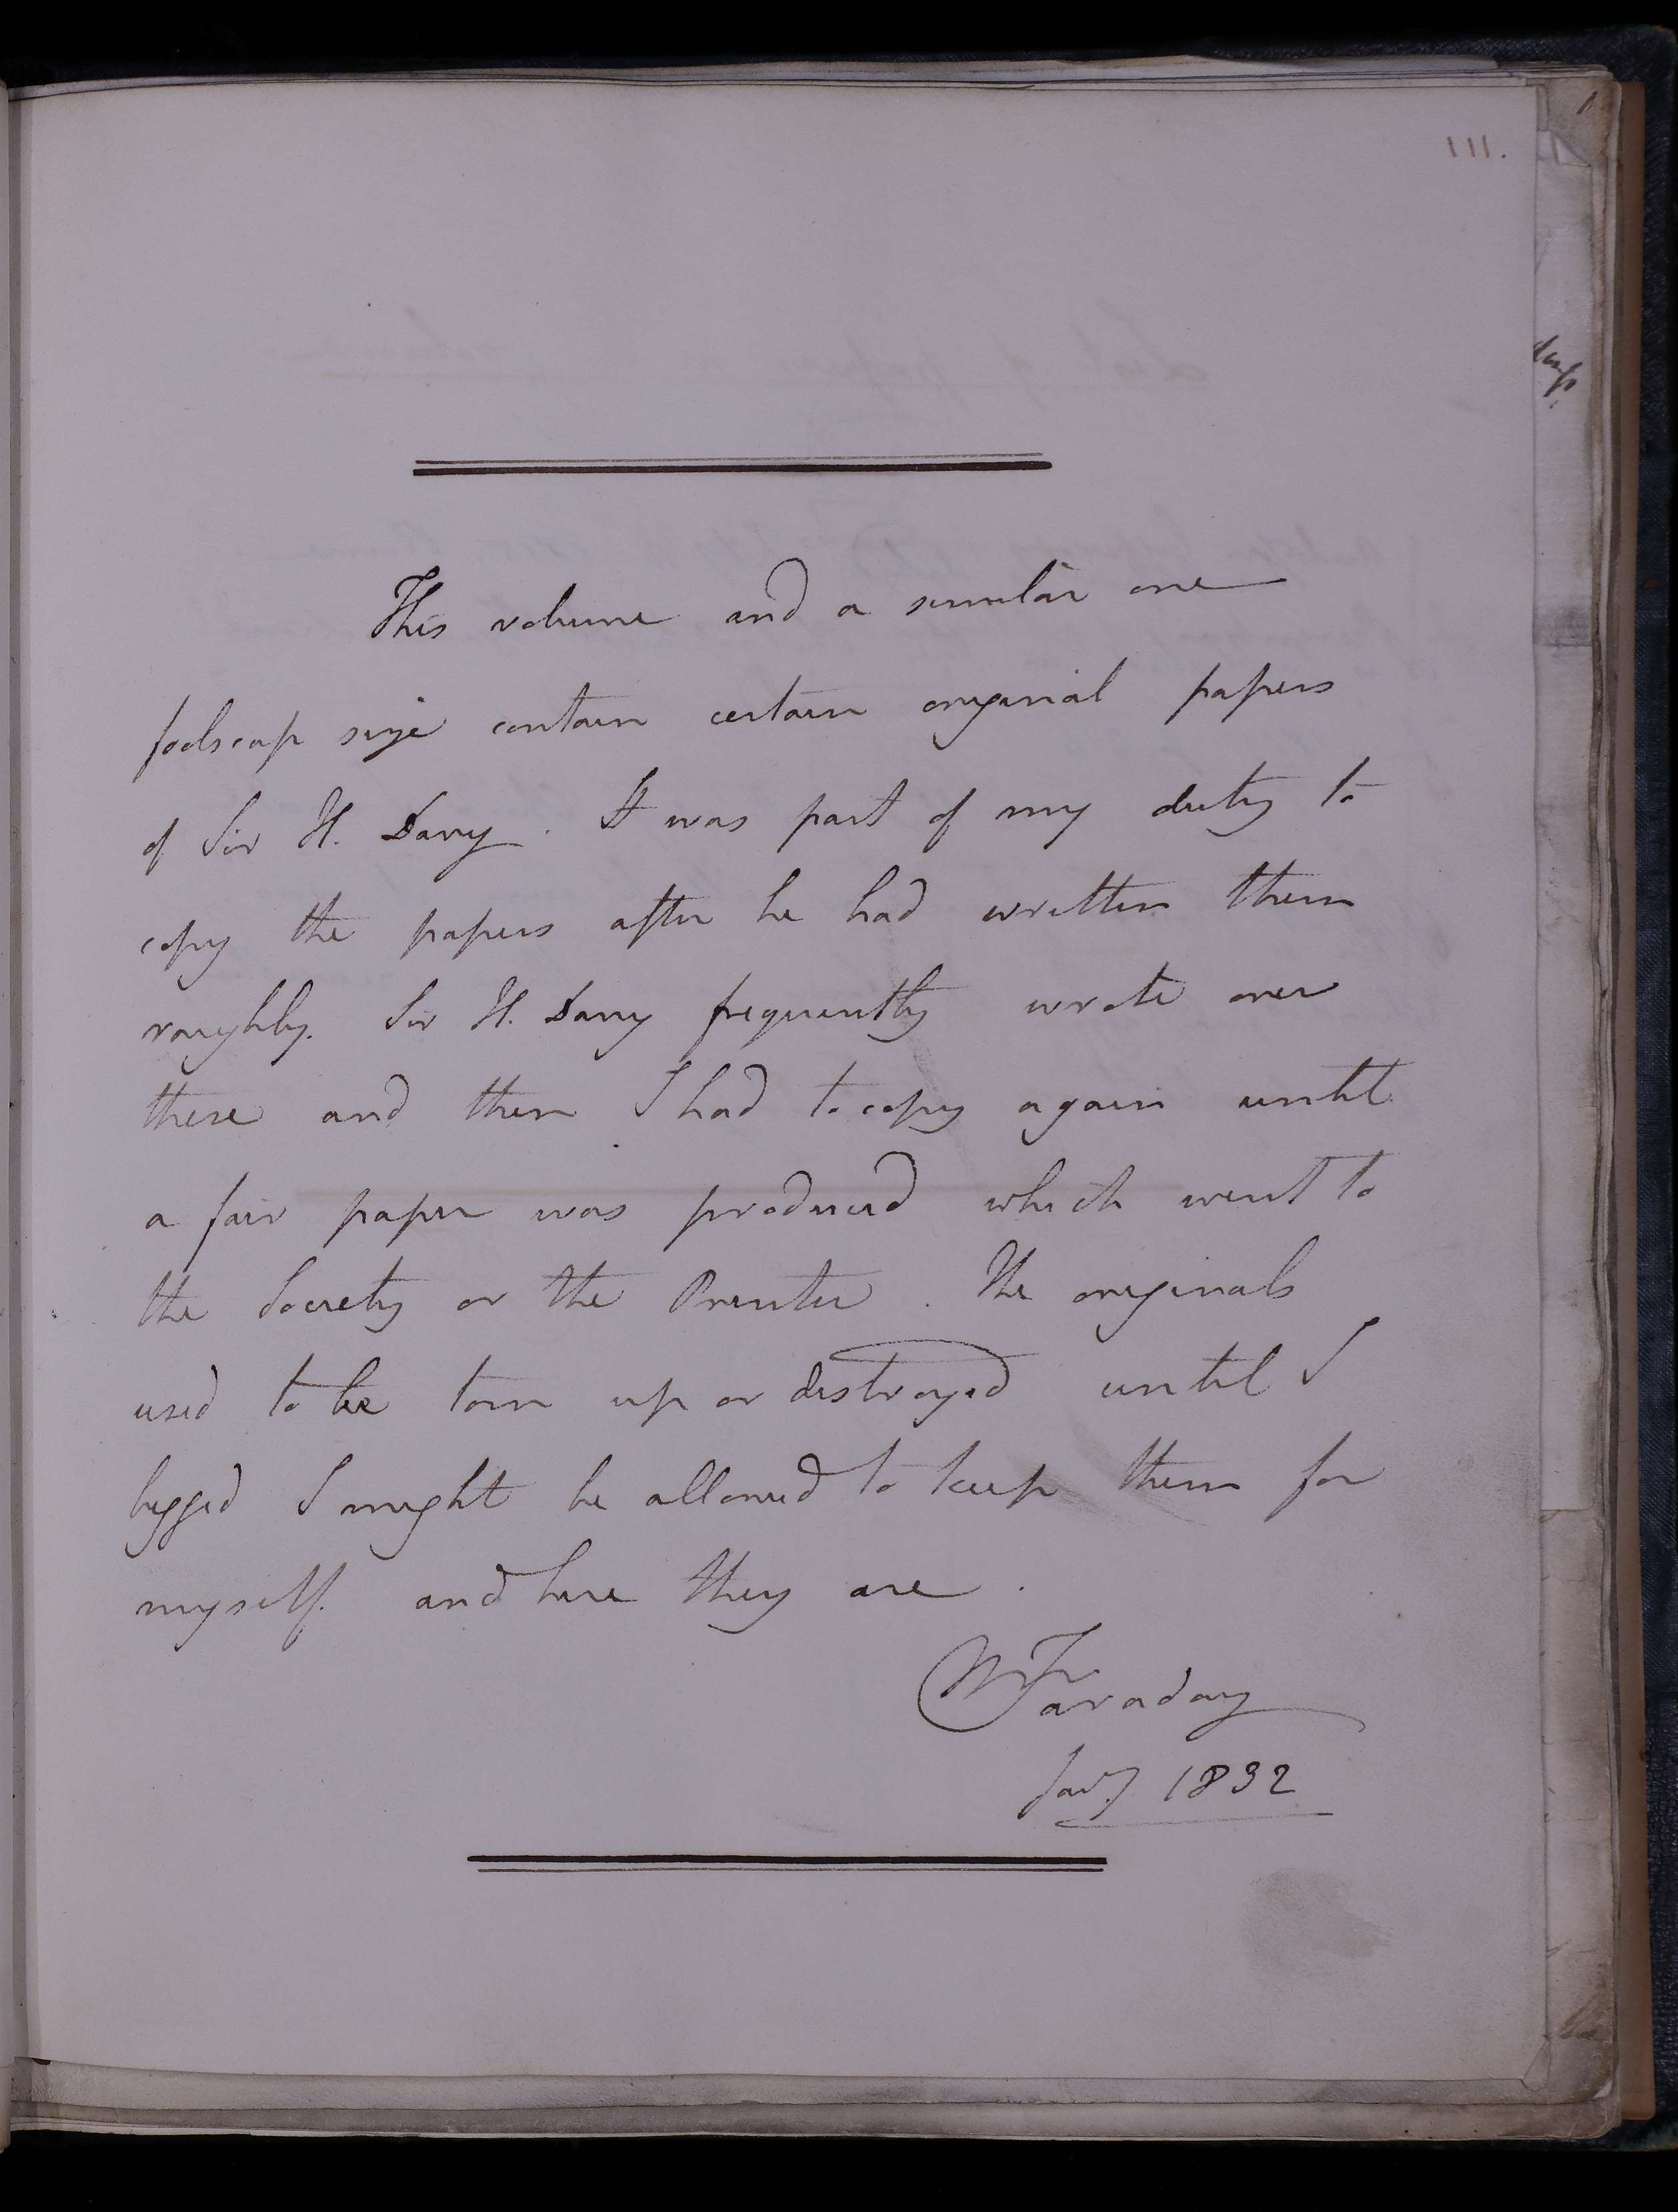 111.
This volume and a similar one
foolscap size contain certain original papers
of Sir H. Davy. It was part of my duty to
copy the papers after he had written them
roughly. Sir H. Davy frequently wrote over
these and then I had to copy again until
a fair paper was produced which went to
the Society or the Printer. The originals
used to be torn up or destroyed until I
begged I might be allowed to keep them for
myself. and here they are.
M Faraday
Jany 1832